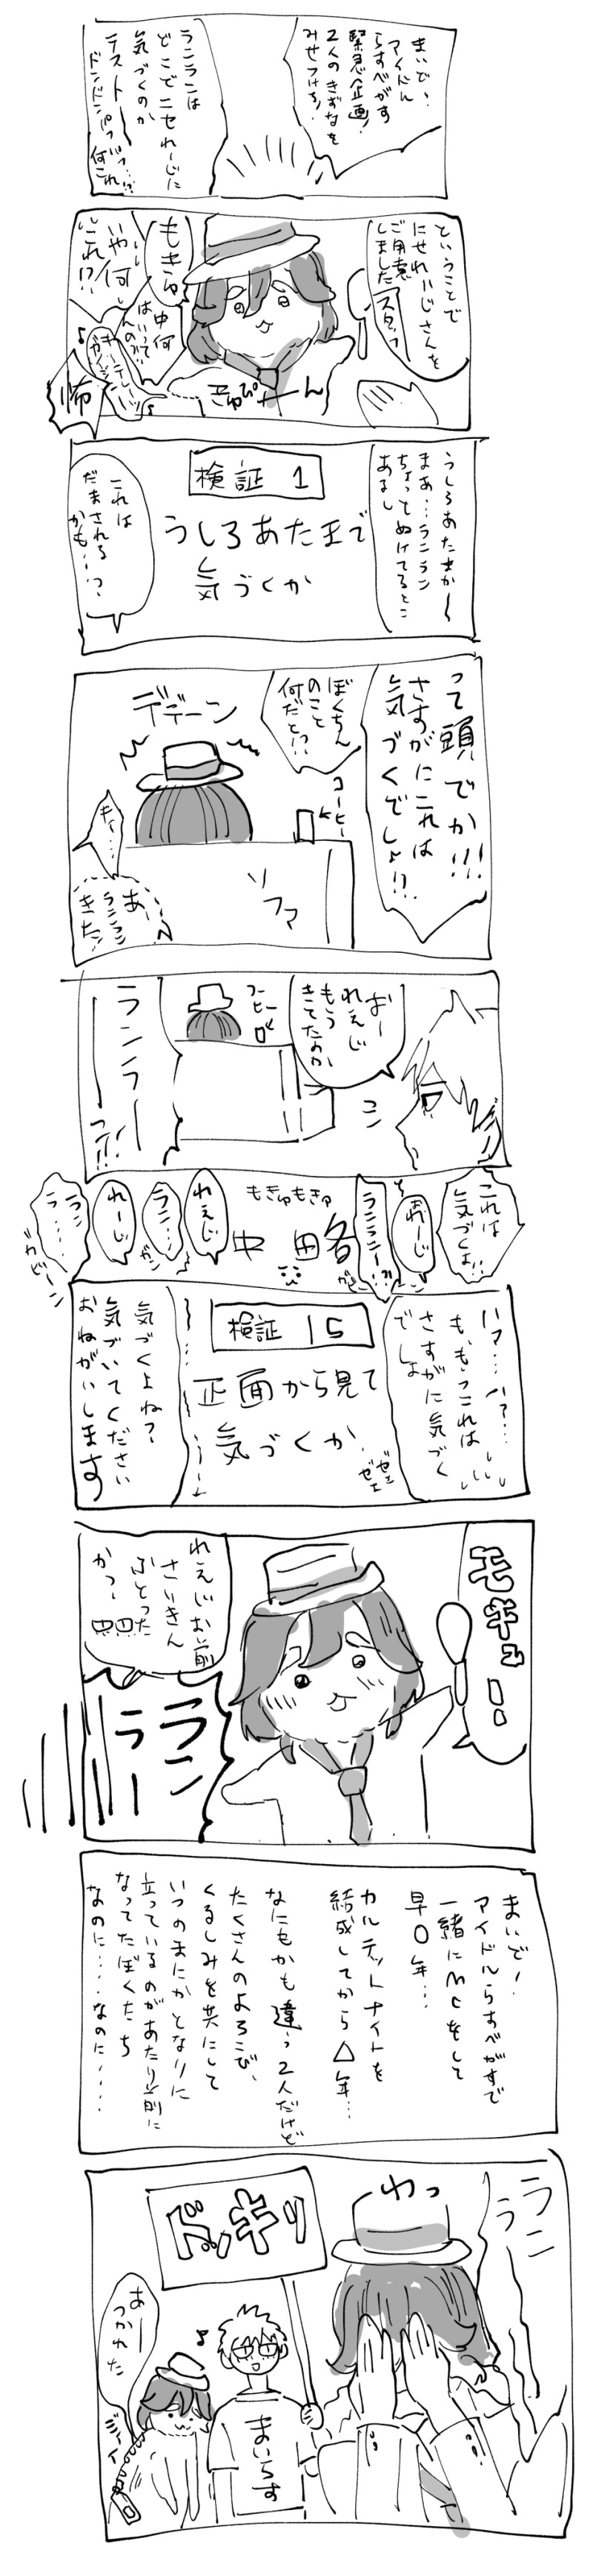 まいど!
アイドル
らすべがす
緊急企画!
2人のきずなを
みせつけろ!
ランランは
どこでニセれーじに
気づくのか
テストー
ドンドンパフパフ…!?
何これ
ということで
にせれいじさんを
ご用意
しました
スタッフ
もきゅ
中何
はいって
んの!?
いや何
これ!?
きゅぴーん
怖
うしろあたまか〜
まあ…ランラン
ちょっとぬけてるとこ
あるし
検証 1
うしろあたまで
気づくか
これは
だまされる
かも…?
って頭でか!!!
さすがにこれは
気づくでしょ!?
ぼくちん
のこと
何だと!?
デデーン
コーヒー
ソファ
あー
ランラン
きたっ
おー
れえじ
もう
きてたのか
コーヒー
ランラー
これは
気づくよ!!
ランラン!?
もきゅもきゅ
中 田各
れえじ
ラン…
れーじ
ラン
ラ…
ガビーン
い?…い?…
も、もうこれは
さすがに気づく
でしょ
検証 15
正面から見て
気づくか
ゼェ
ゼェ
気づくよね?
気づいてください
おねがいします
モキュー!
れえじお前
さいきん
ふとった
か?
ラン
ラー
まいどー!
アイドルらすべがすで
一緒にMCをして
早〇年…
カルテットナイトを
結成してから△年…
なにもかも違う2人だけど
たくさんのよろこび、
くるしみを共にして
いつのまにかとなりに
立っているのがあたり前に
なってたぼくたち
なのに…なのに…
ラン
ラン
わっ
ドッキリ
あー
つかれた
♪
まいらす